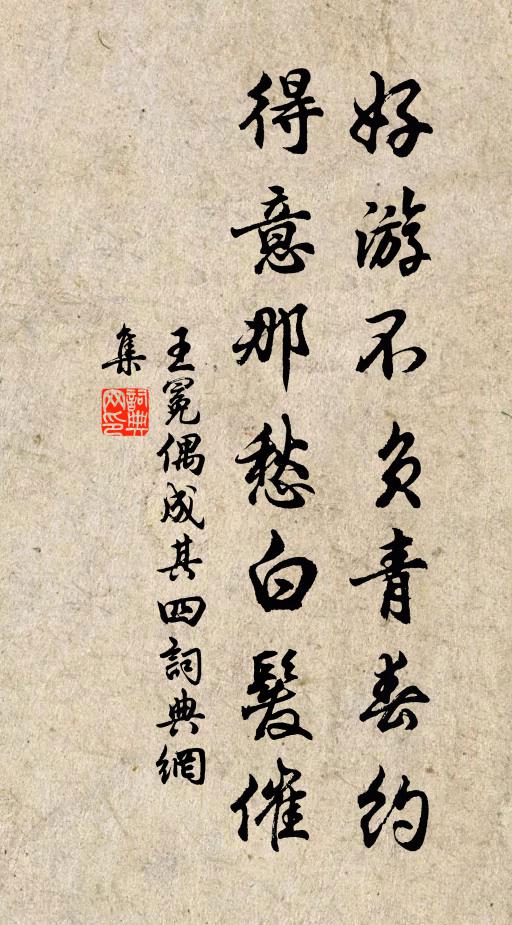 好游不负青春约
得意那愁白髮催
王冕偶成其四詞典網
集
詞典
网印